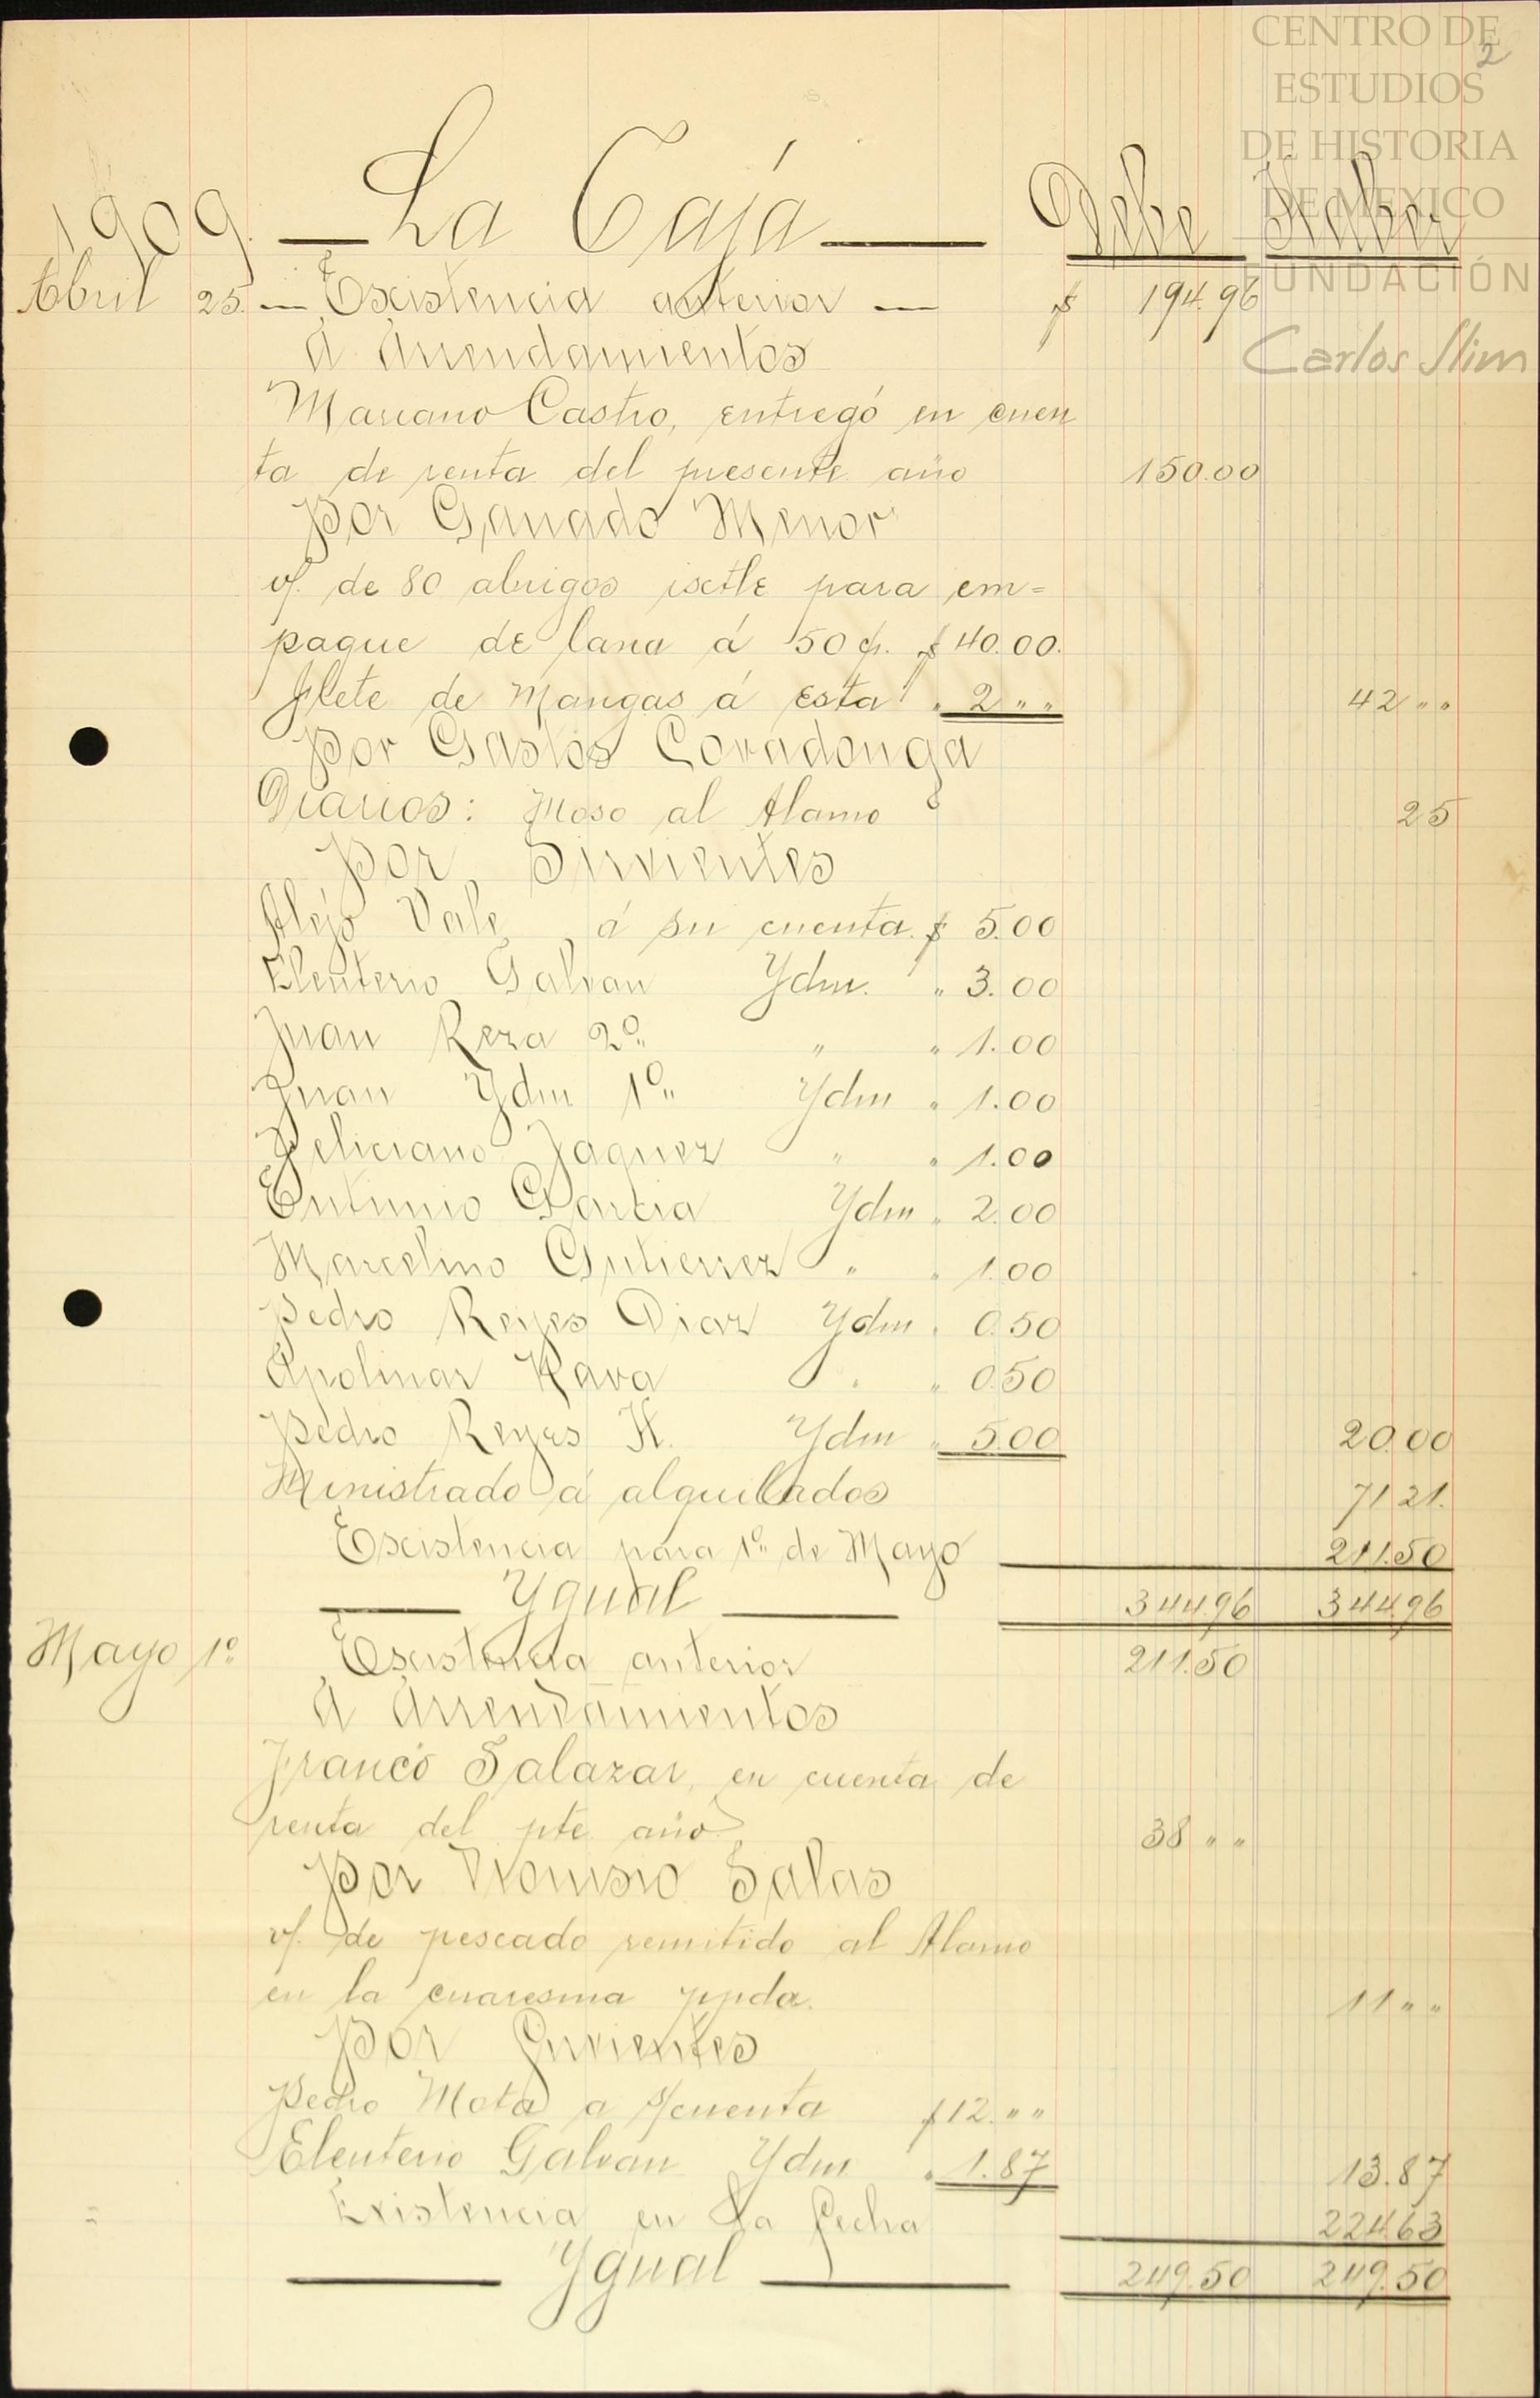 CENTRO DE
ESTUDIOS
DE HISTORIA
DE MEXICO
FUNDACIÓN
Carlos Slim
2
1909. La Caja Debe Haber
Abril 25. Existencia anterior $ 194.96
A Arrendamientos
Mariano Castro, entregó en cuen
ta de renta del presente año 150.00
Por Ganado Menor
v/. de 80 abrigos ixtle para em=
paque de lana á 50 c/. $ 40.00.
flete de Mangas á esta " 2 " " 42 " "
Por Gastos Covadonga
Diarios: Moso al Alamo 25
Por Sirvientes
Alejo Vale á su cuenta. $ 5.00
Eleuterio Galvan Ydm. " 3.00
Juan Reza 2º " " 1.00
Juan Ydm 1º Ydm " 1.00
Feliciano Jaquez " " 1.00
Entimio Garcia Ydm " 2.00
Marcelino Gutierrez " " 1.00
Pedro Reyes Diaz Ydm " 0.50
Apolinar Nava " " 0.50
Pedro Reyes H. Ydm " 5.00 20.00
Ministrado á alquilados 71.21.
Existencia para 1º de Mayo 211.50
Ygual 344.96 344.96
Mayo 1º Existencia anterior 211.50
A Arrendamientos
Franco Salazar, en cuenta de
renta del pte. año 38 " "
Por Dionisio Salas
v/. de pescado remitido al Alamo
en la cuaresma ppda. 11 " "
Por Sirvientes
Pedro Mota a s/cuenta $ 12. " "
Eleuterio Galvan Ydm " 1.87 13.87
Existencia en la fecha 224.63
Ygual 249.50 249.50